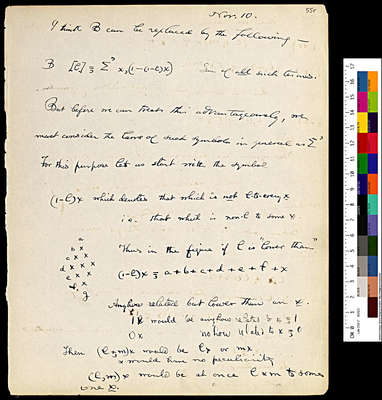 Nov. 10.
I think B can be replaced by the following —
B [ℓ] Σ x, (1-(1-ℓ)x) of all such terms.
But before we can treat this advantageously, we
must consider the laws of such symbols in general as Σ
For this purpose let us start with the symbol
(1-ℓ)x which denotes that which is not ℓ to every x
i.e. that which is non-ℓ to some x.
a
b x x
c x x x
d x x x x
e x x x
f x x
g
Thus in the figure if ℓ is "lower than"
(1-ℓ)x = a+b+c+d+e+f+x
Anyhow related but lower than an x.
1x would be anyhow related to x = 1
0x no how related to x = 0
Then (ℓ,m)x would be ℓx or mx
x would have no peculiarity
(ℓ,m)x would be at once ℓ & m to some
one x.